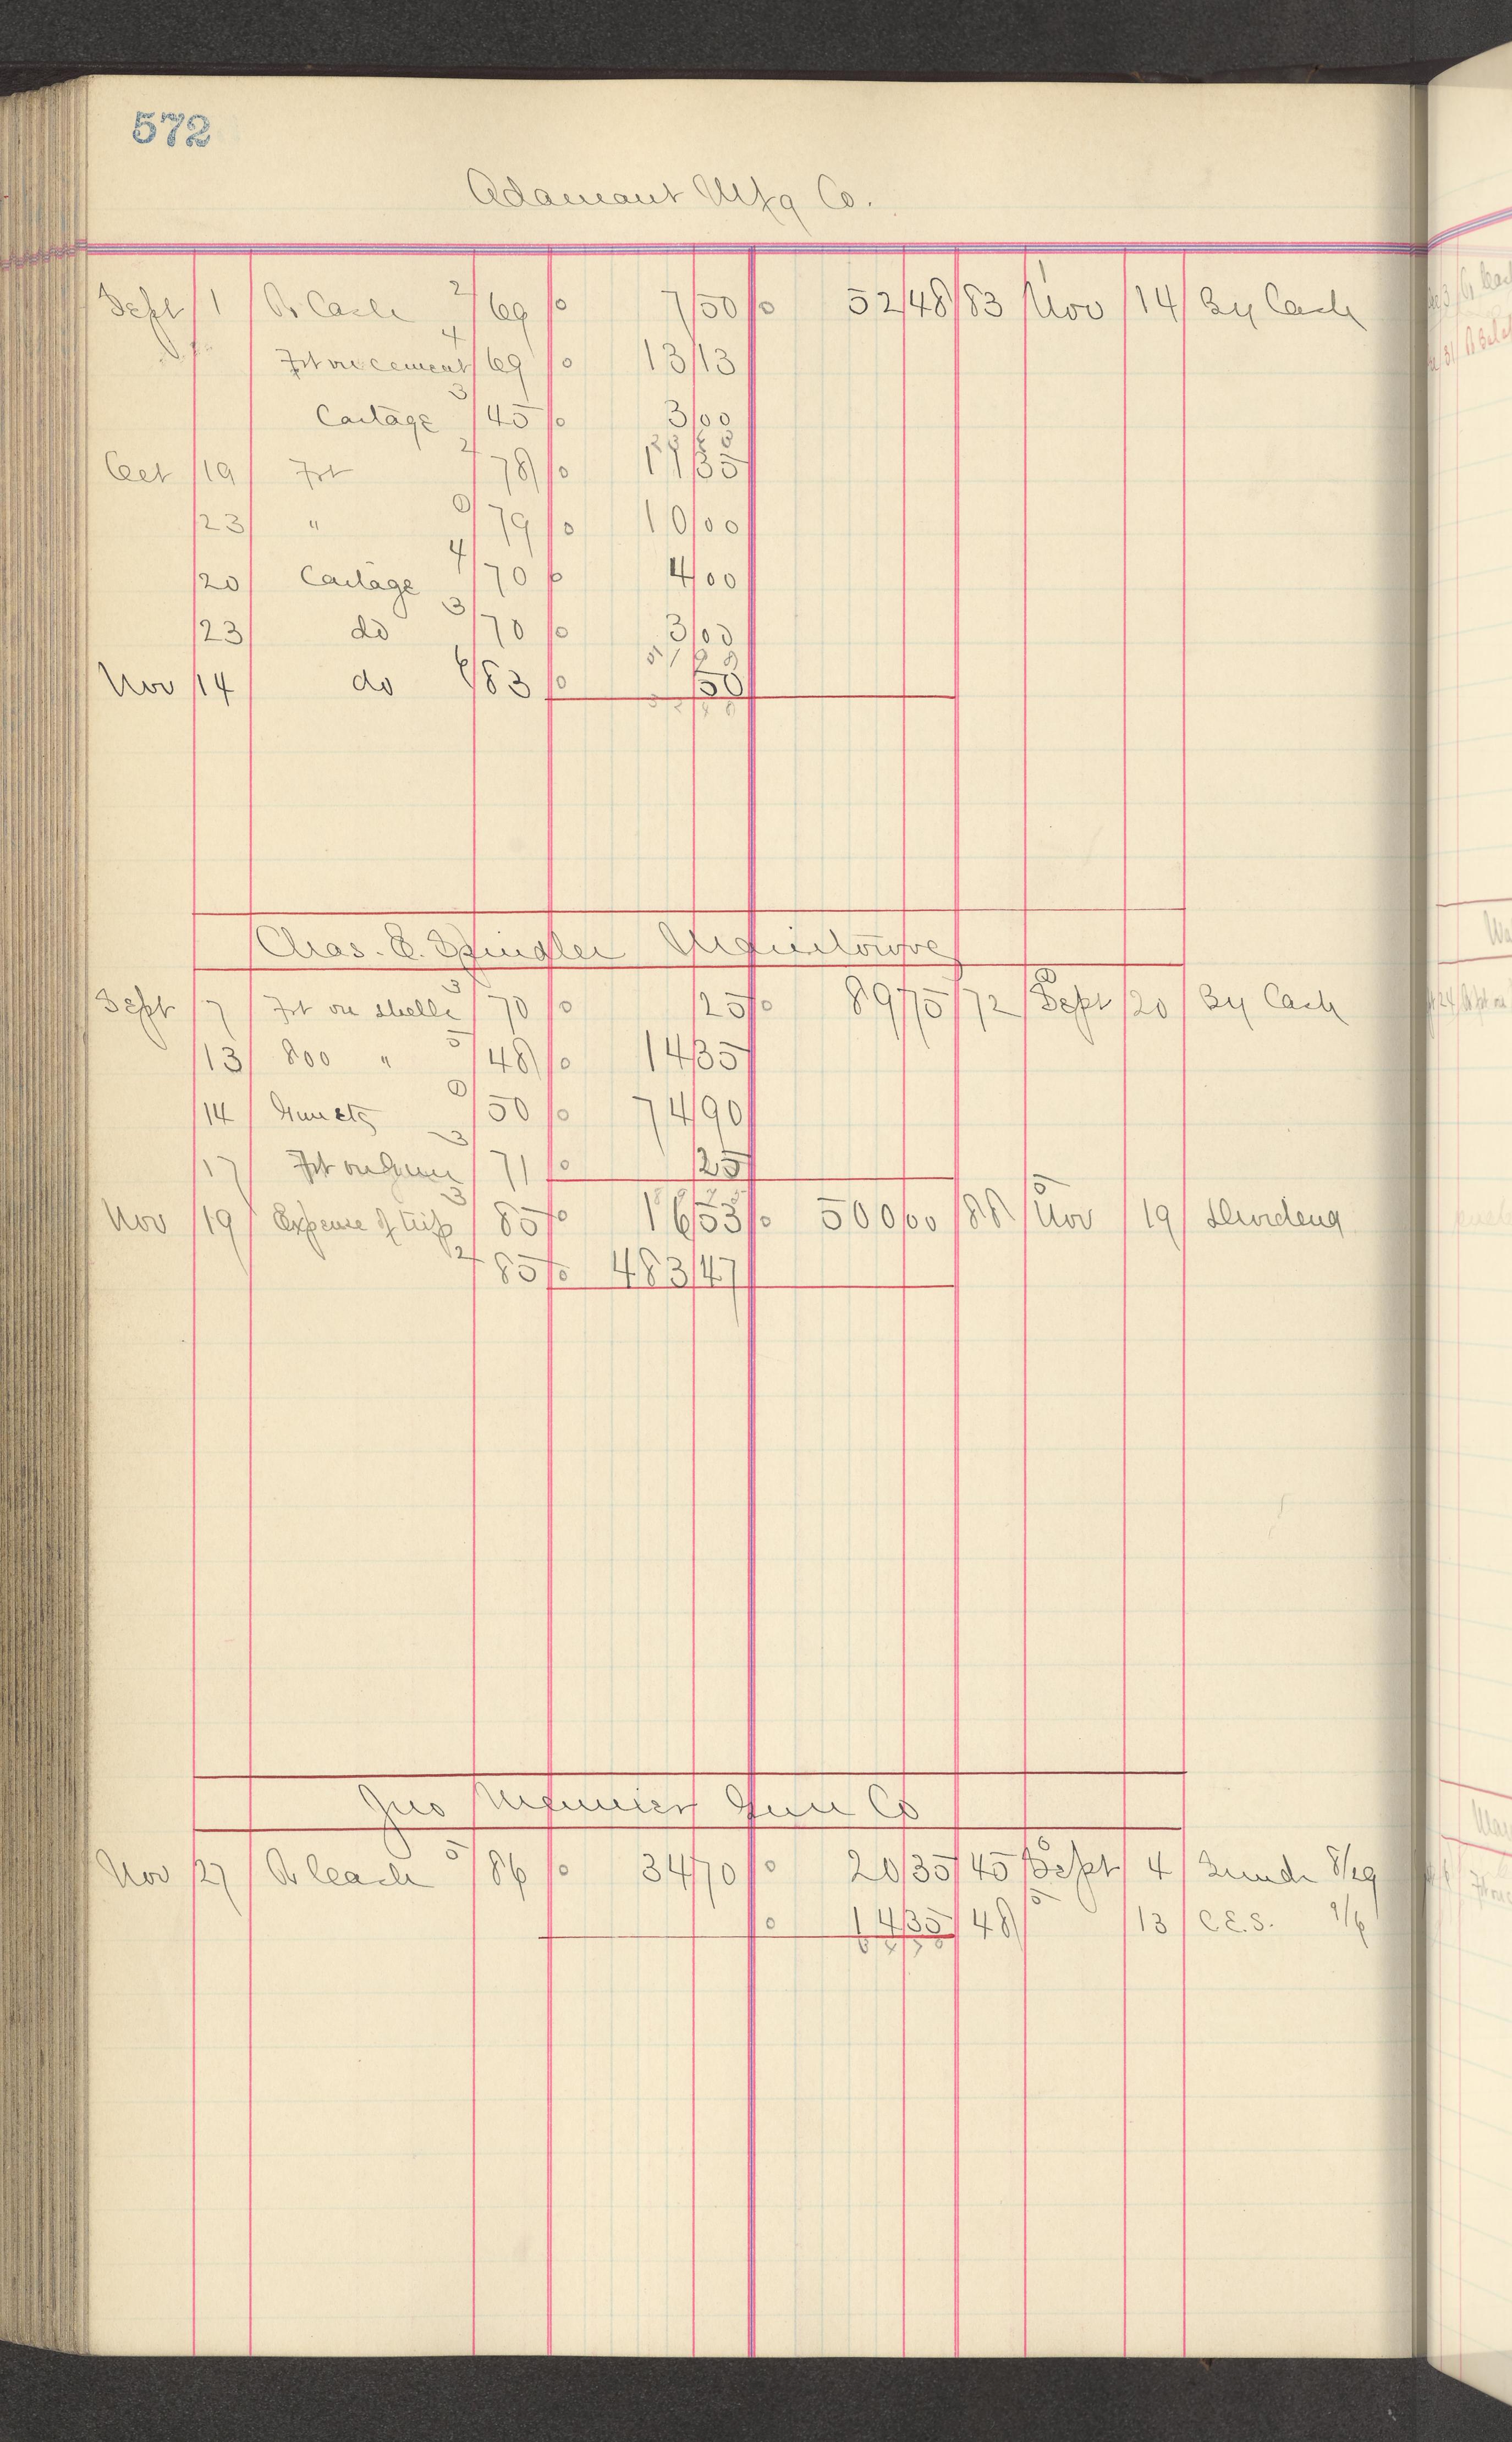 572
Adamant Mfg Co.
Sept 1 By Cash 2 69 7 50 52 48 83 Nov 14 By Cash
Frt on cement 4 69 13 13
Cartage 3 45 3 00
Oct 19 Frt 2 78 11 35
23 " 0 79 10 00
20 Cartage 4 70 4 00
23 do 3 70 3 00
Nov 14 do 6 83 50
Chas. E. Spindler Manitowoc
Sept 7 Frt on shells 3 70 25 89 75 72 Sept 20 By Cash
13 800 " 5 48 14 35
14 Gun etc 0 50 74 90
17 Frt on Gun 3 71 25
Nov 19 Expense of trip 3 85 16 53 500 00 88 Nov 19 Dividend
2 85 483 47
Jno Meunier Gun Co
Nov 27 By Cash 5 86 34 70 20 35 45 Sept 4 8/29
14 35 48 5 13 C.E.S. 9/6